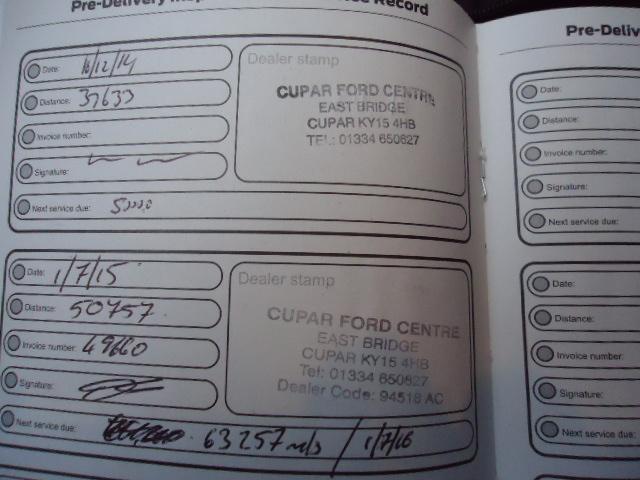 Pre-Delivery Record
Date: 16/12/14
Distance: 37633
Invoice number:
Signature:
Next service due: 50000
Dealer stamp
CUPAR FORD CENTRE
EAST BRIDGE
CUPAR KY15 4HB
TEL: 01334 650627
Date: 1/7/15
Distance: 50757
Invoice number: 49660
Signature:
Next service due: 63257 m/s / 1/7/16
Dealer stamp
CUPAR FORD CENTRE
EAST BRIDGE
CUPAR KY15 4HB
Tel: 01334 650627
Dealer Code: 94518 AC
Pre-Deliv
Date:
Distance:
Invoice number:
Signature:
Next service due:
Date:
Distance:
Invoice number:
Signature:
Next service due: